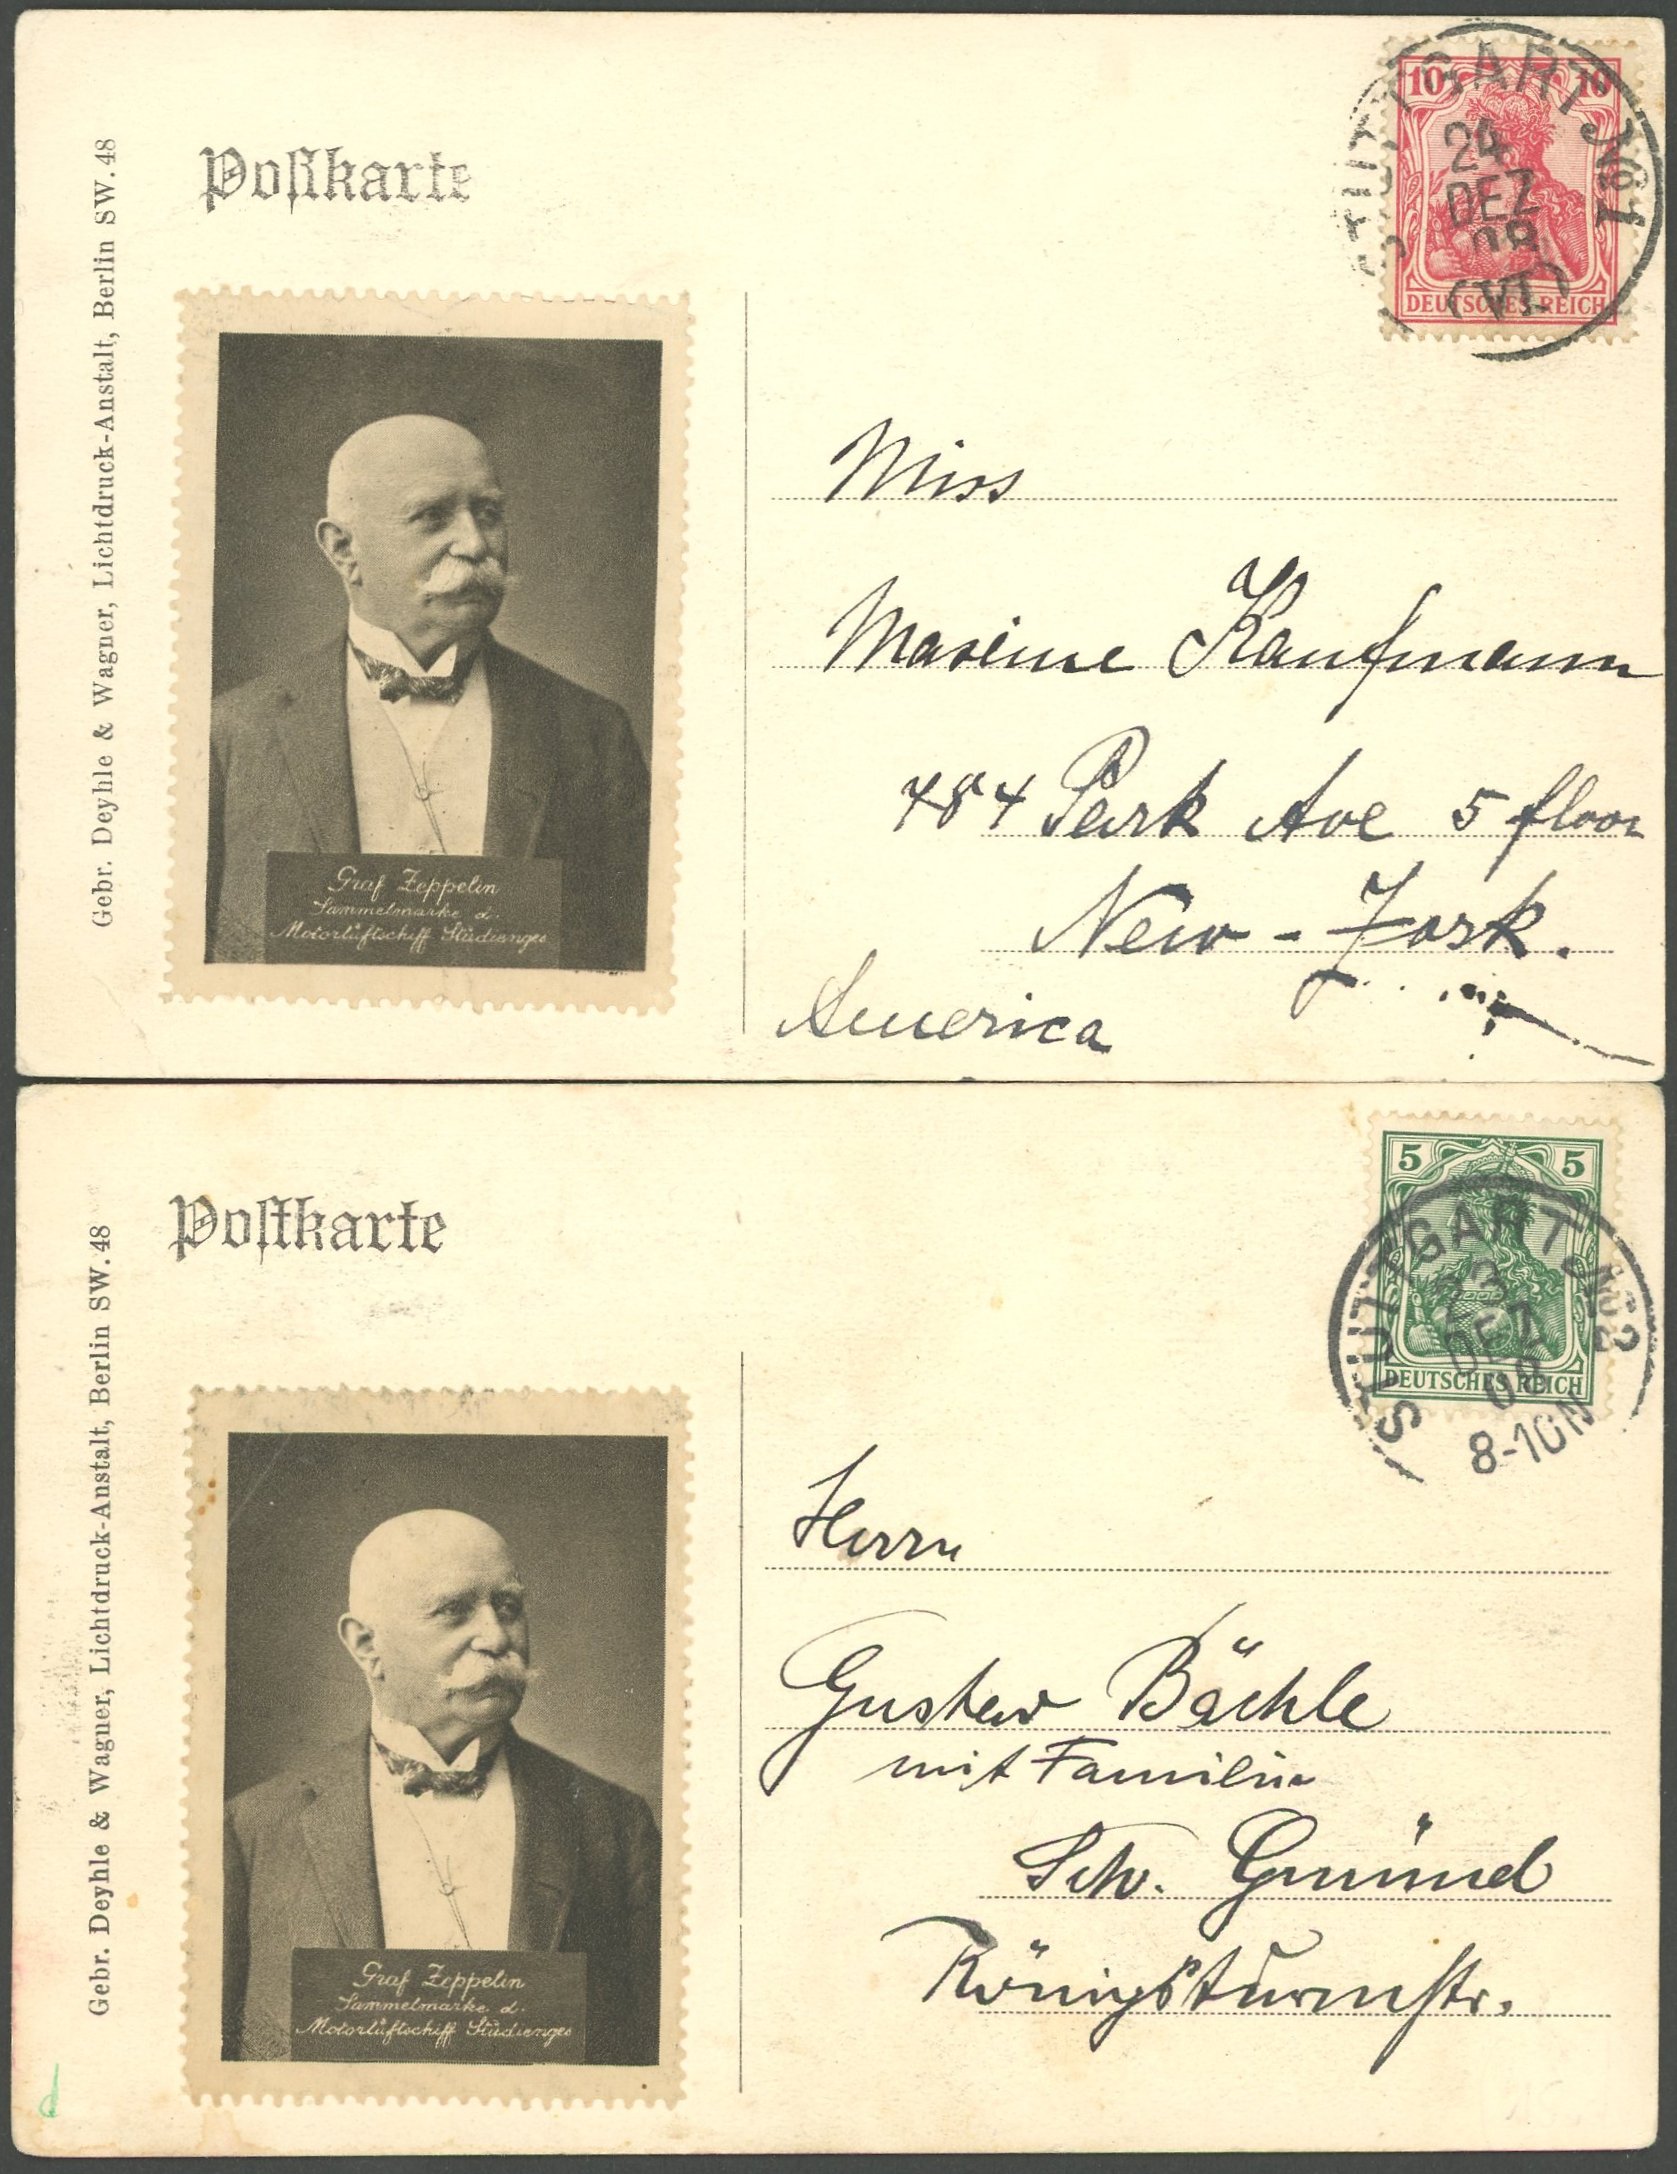 Postkarte
Gebr. Deyhle & Wagner, Lichtdruck-Anstalt, Berlin SW. 48
10 10
DEUTSCHES REICH
STUTTGART №1
24
DEZ
08
(VI)
Graf Zeppelin
Sammelmarke d.
Motorluftschiff Studienges
Miss
Maxime Kaufmann
784 Park Ave 5 floor
New-York.
America
Postkarte
Gebr. Deyhle & Wagner, Lichtdruck-Anstalt, Berlin SW. 48
5 5
DEUTSCHES REICH
STUTTGART №2
23
DEZ
08
8-10N
Graf Zeppelin
Sammelmarke d.
Motorluftschiff Studienges
Herrn
Gustav Bächle
mit Familie
Schw. Gmünd
Königsturmstr.